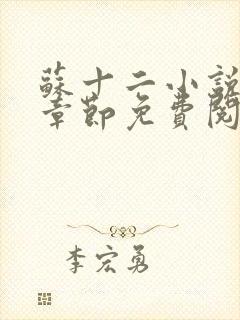 蘇十二小説
章節免費閱
李宏勇